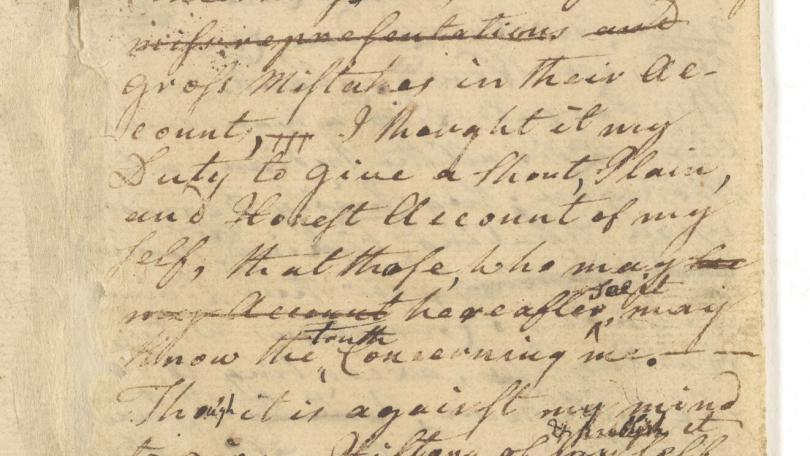 misrepresentations and
gross Mistakes in their Ac-
count, I thought it my
Duty to give a Short, Plain,
and Honest Account of my
self, that those, who may see
my Account hereafter, see it may
Know the truth Concerning me. — —
Though it is against my mind
& publish it
History of my self